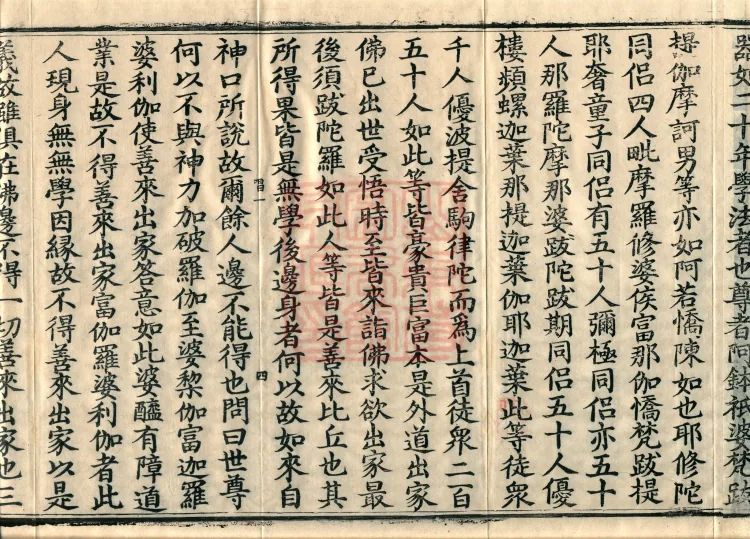 器如二十年學法者也尊者阿㝹祇婆梵跋
提伽摩訶男等亦如阿若憍陳如也耶修陀
同侶四人毗摩羅修婆侯富那伽憍梵跋提
耶奢童子同侶有五十人彌極同侶亦五十
人那羅陀摩那婆跋陀跋期同侶五十人優
樓頻螺迦葉那提迦葉伽耶迦葉此等徒衆
千人優波提舍駒律陀而爲上首徒衆二百
五十人如此等皆豪貴巨富本是外道出家
佛已出世受悟時至皆來詣佛求欲出家最
後須跋陀羅如此人等皆是善來比丘也其
所得果皆是無學後邊身者何以故如來自
習一
四
神口所說故爾餘人邊不能得也問曰世尊
何以不與神力加破羅伽至婆黎伽富迦羅
婆利伽使善來出家答意如此婆醯有障道
業是故不得善來出家富伽羅婆利伽者此
人現身無無學因緣故不得善來出家以是
義故雖俱在佛邊不得一切善來出家也三